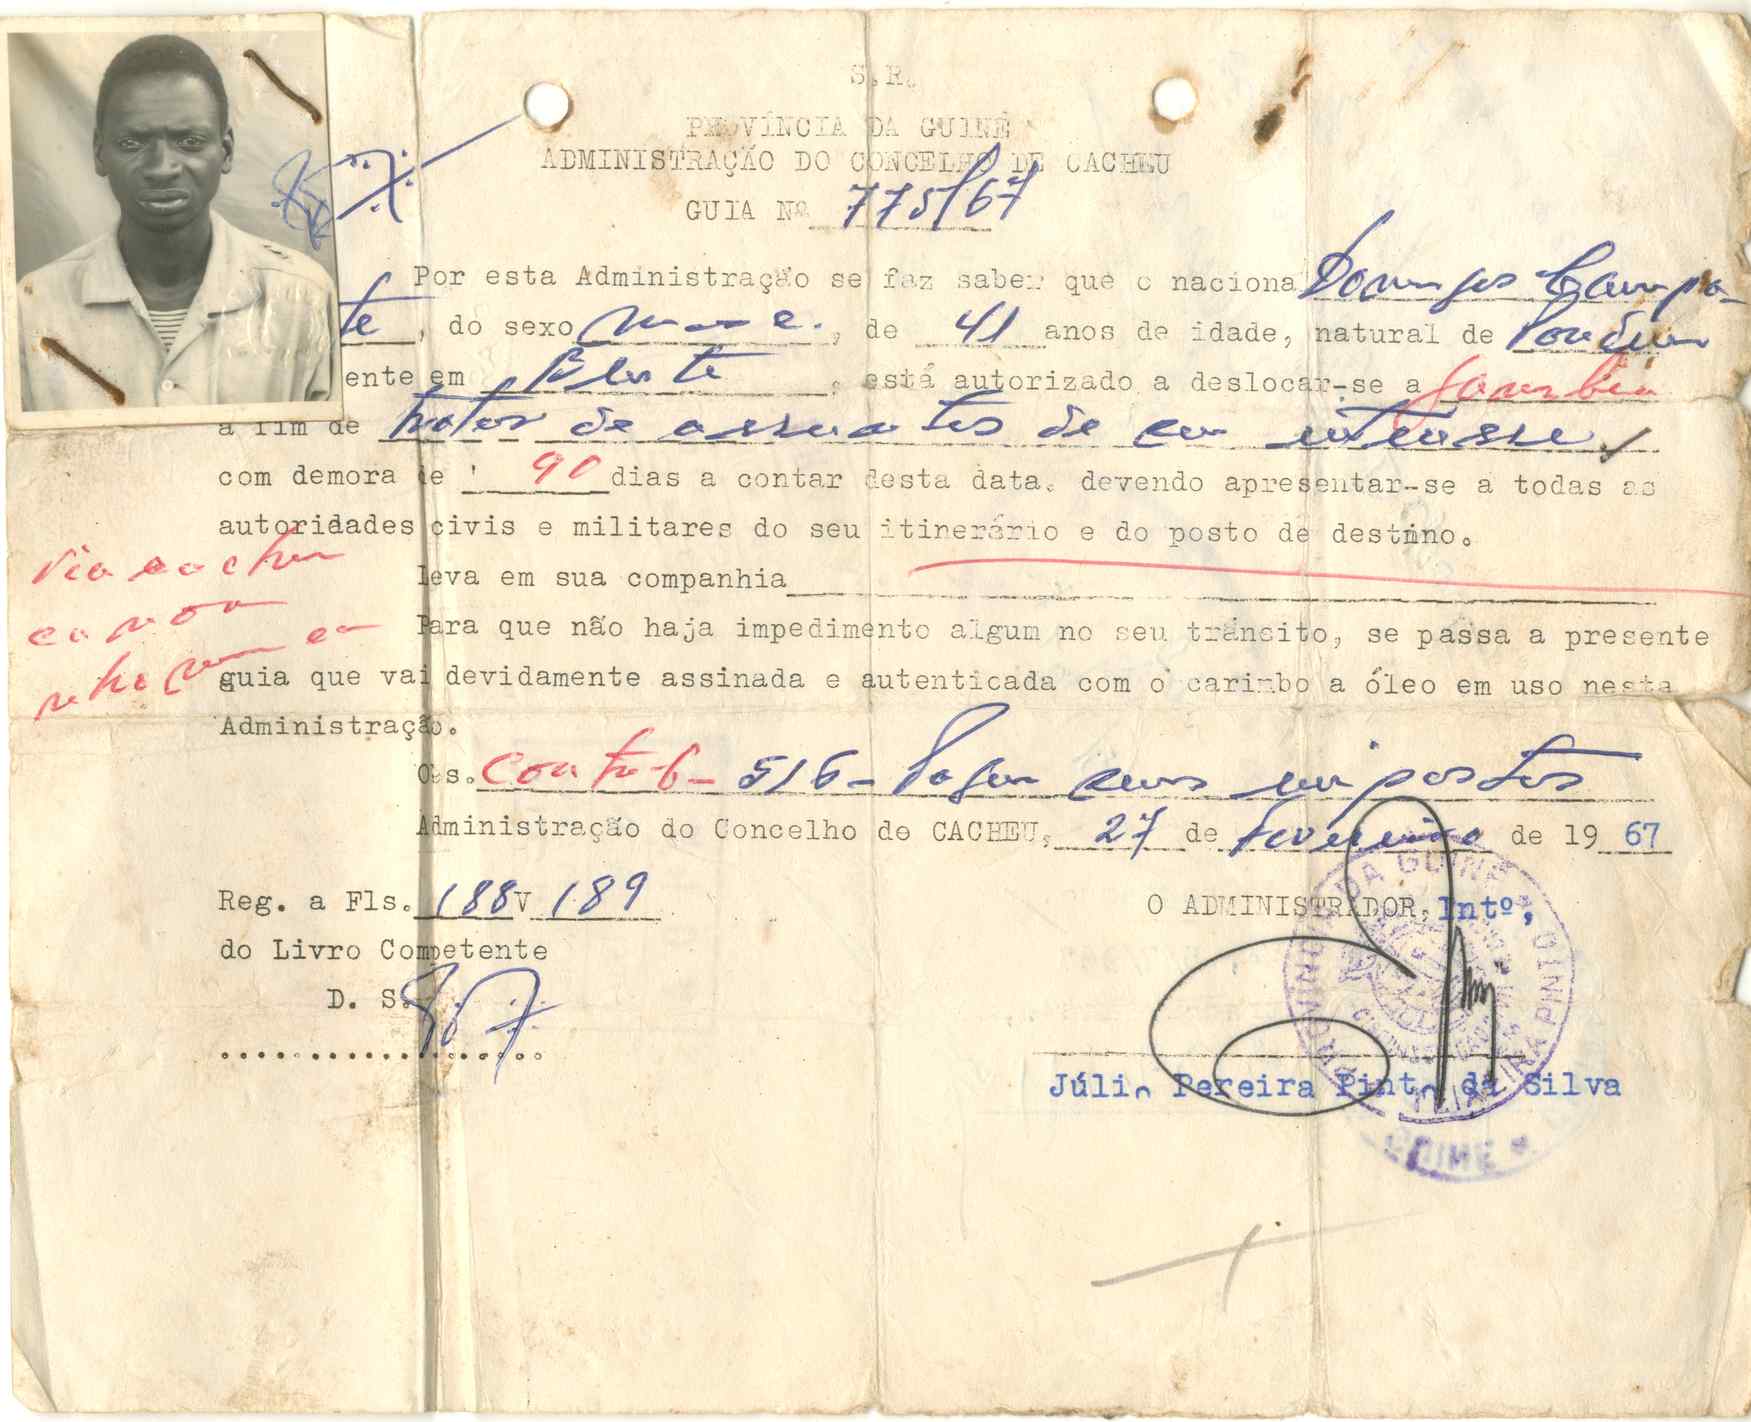 S.R.
PROVÍNCIA DA GUINÉ
ADMINISTRAÇÃO DO CONCELHO DE CACHEU
GUIA Nº 775/67
Por esta Administração se faz saber que o naciona Domingos Campo-
te, do sexo masc., de 41 anos de idade, natural de
ente em , está autorizado a deslocar-se a Gambia
a fim de tratar de assuntos de seu interesse
com demora de 90 dias a contar desta data, devendo apresentar-se a todas as
autoridades civis e militares do seu itinerário e do posto de destino.
Via Cacheu
leva em sua companhia
canoa
Para que não haja impedimento algum no seu trânsito, se passa a presente
guia que vai devidamente assinada e autenticada com o carimbo a óleo em uso nesta
Administração.
Obs. Contrib- 516- Pagou seus impostos
Administração do Concelho de CACHEU, 27 de fevereiro de 1967
Reg. a Fls. 188V 189
O ADMINISTRADOR, Intº,
do Livro Competente
D. S.
Júlio Pereira Pinto da Silva
PROVÍNCIA DA GUINÉ
GUINÉ